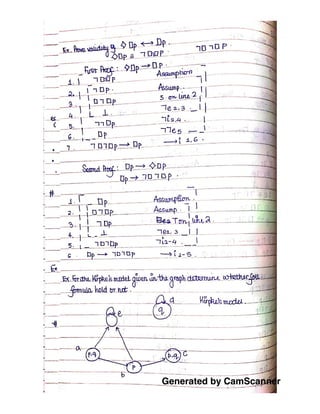 Ex. Prove validity of ◇□p ↔ □p.
◇□p ≡ ¬□¬□p ¬□¬□P
First Proof: ◇□p → □p.
1. ¬□¬□p Assumption
2. ¬□p. Assump.
3. □¬□p 5 on line 2
4. ⊥ ¬e 2,3
5. ¬¬□p ¬i 2-4.
6. □p ¬¬e 5
7. ¬□¬□p → □p. →i 1-6.
Second Proof: □p → ◇□p
□p → ¬□¬□p.
1. □p Assumption.
2. □¬□p Assump.
3. ¬□p T on line 2.
4. ⊥ ¬e 1,3
5. ¬□¬□p ¬i 2-4.
6 □p → ¬□¬□p →i 1-5.
Ex.
Ex. For the Kripke model given in the graph determine whether
formula hold or not.
d Kripke model.
q
e
a
p,q p,q c
p
b
Generated by CamScanner